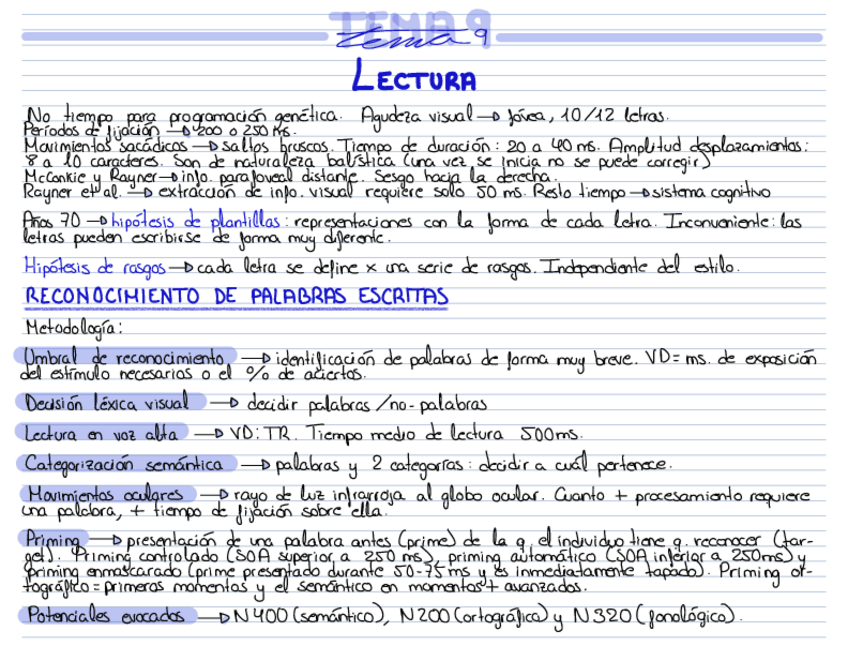 TEMA 9
Tema 9
LECTURA
No tiempo para programación genética. Agudeza visual → fóvea, 10/12 letras.
Períodos de fijación → 200 o 250 ms.
Movimientos sacádicos → saltos bruscos. Tiempo de duración: 20 a 40 ms. Amplitud desplazamientos:
8 a 10 caracteres. Son de naturaleza balística (una vez se inicia no se puede corregir)
McConkie y Rayner → info. parafoveal distante. Sesgo hacia la derecha.
Rayner et al. → extracción de info. visual requiere solo 50 ms. Resto tiempo → sistema cognitivo
Años 70 → hipótesis de plantillas: representaciones con la forma de cada letra. Inconveniente: las
letras pueden escribirse de forma muy diferente.
Hipótesis de rasgos → cada letra se define x una serie de rasgos. Independiente del estilo.
RECONOCIMIENTO DE PALABRAS ESCRITAS
Metodología:
Umbral de reconocimiento → identificación de palabras de forma muy breve. VD = ms. de exposición
del estímulo necesarios o el % de aciertos.
Decisión léxica visual → decidir palabras / no-palabras
Lectura en voz alta → VD: TR. Tiempo medio de lectura 500ms.
Categorización semántica → palabras y 2 categorías: decidir a cuál pertenece.
Movimientos oculares → rayo de luz infrarroja al globo ocular. Cuanto + procesamiento requiere
una palabra, + tiempo de fijación sobre ella.
Priming → presentación de una palabra antes (prime) de la q el individuo tiene q. reconocer (tar-
get). Priming controlado (SOA superior a 250 ms), priming automático (SOA inferior a 250ms) y
priming enmascarado (prime presentado durante 50-75 ms y es inmediatamente tapado). Priming or-
tográfico = primeros momentos y el semántico en momentos + avanzados.
Potenciales evocados → N400 (semántico), N200 (ortográfica) y N320 (fonológico).